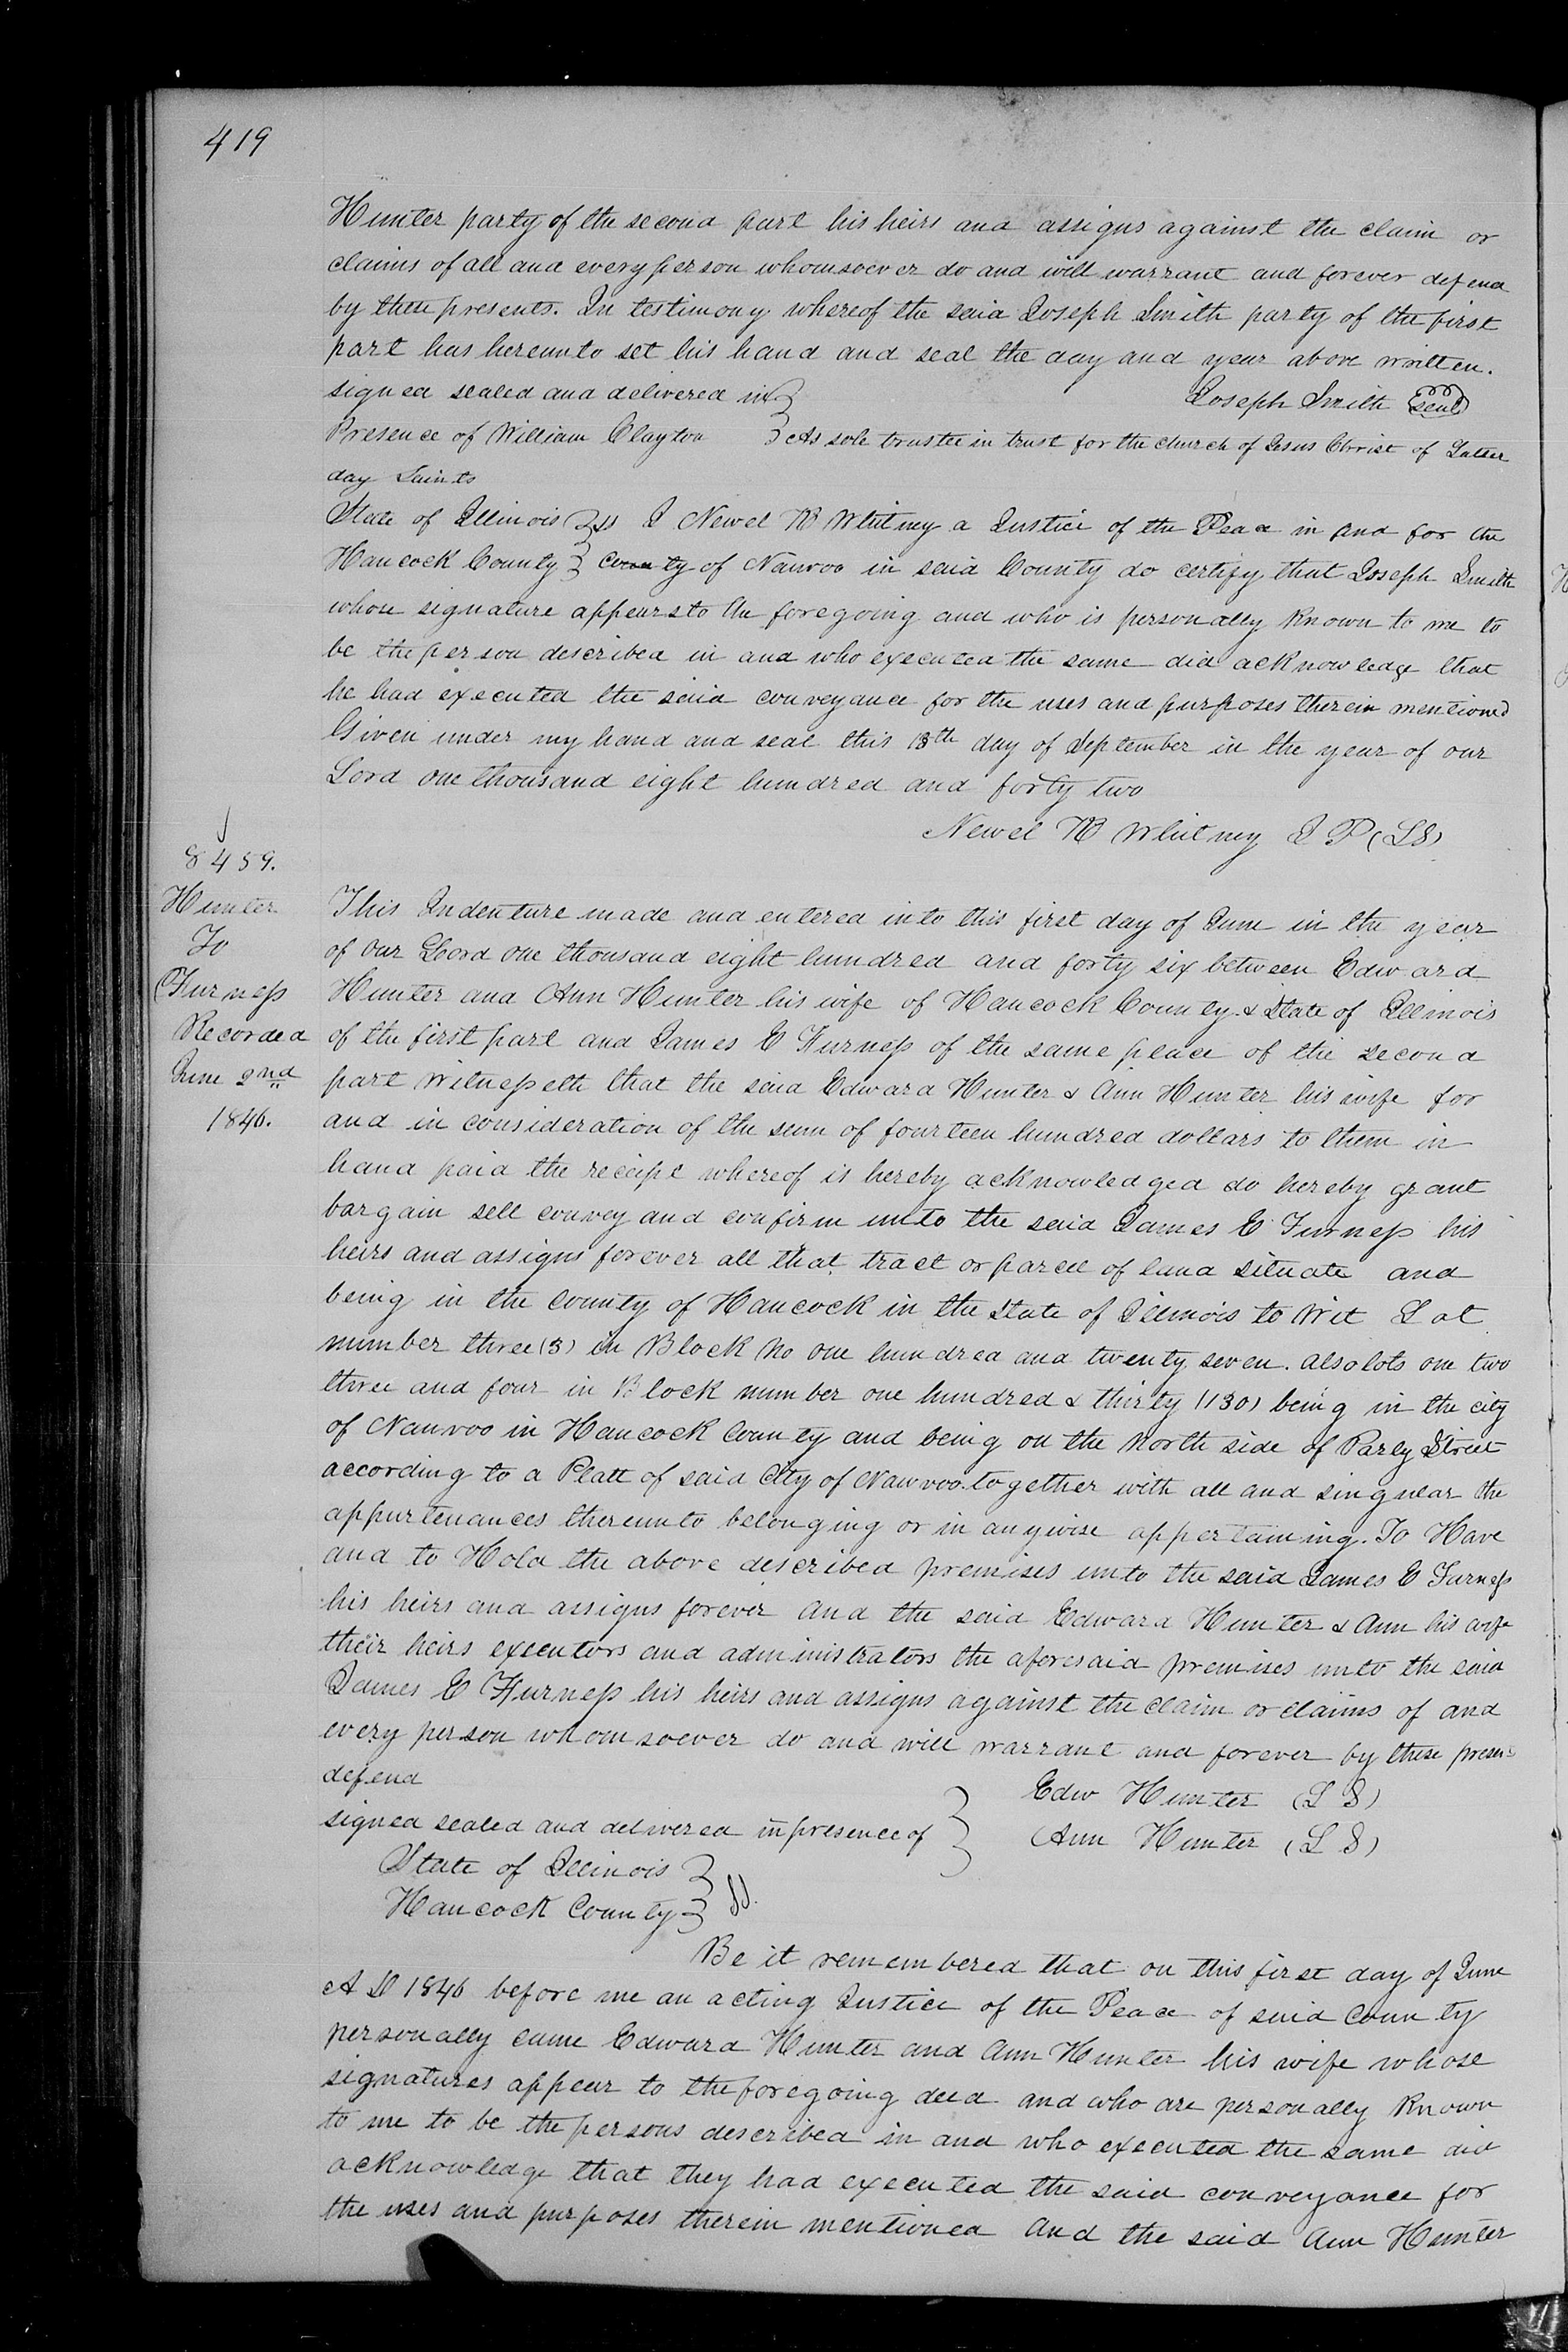 419
Hunter party of the second part his heirs and assigns against the claim or
claims of all and every person whomsoever do and will warrant and forever defend
by these presents. In testimony whereof the said Joseph Smith party of the first
part has hereunto set his hand and seal the day and year above written.
signed sealed and delivered in } Joseph Smith (seal)
Presence of William Clayton } As sole trustee in trust for the church of Jesus Christ of Latter
day Saints
State of Illinois } ss I Newel K Whitney a Justice of the Peace in and for the
Hancock County } county of Nauvoo in said County do certify that Joseph Smith
whose signature appears to the foregoing and who is personally known to me to
be the person described in and who executed the same did acknowledge that
he had executed the said conveyance for the uses and purposes therein mentioned
Given under my hand and seal this 13th day of September in the year of our
Lord one thousand eight hundred and forty two
Newel K Whitney J P (LS)
8459.
Hunter
To
Furness
Recorded
June 2nd
1846.
This Indenture made and entered into this first day of June in the year
of our Lord one thousand eight hundred and forty six between Edward
Hunter and Ann Hunter his wife of Hancock County & State of Illinois
of the first part and James E Furness of the same place of the second
part Witnesseth that the said Edward Hunter & Ann Hunter his wife for
and in consideration of the sum of fourteen hundred dollars to them in
hand paid the receipt whereof is hereby acknowledged do hereby grant
bargain sell convey and confirm unto the said James E Furness his
heirs and assigns forever all that tract or parcel of land situate and
being in the County of Hancock in the State of Illinois to Wit Lot
number three (3) in Block No one hundred and twenty seven. also lots one two
three and four in Block number one hundred & thirty (130) being in the city
of Nauvoo in Hancock County and being on the North side of Parley Street
according to a Platt of said City of Nauvoo together with all and singular the
appurtenances thereunto belonging or in anywise appertaining. To Have
and to Hold the above described premises unto the said James E Furness
his heirs and assigns forever and the said Edward Hunter & Ann his wife
their heirs executors and administrators the aforesaid premises unto the said
James E Furness his heirs and assigns against the claim or claims of and
every person whomsoever do and will warrant and forever by these presen
defend
Edw Hunter (L S)
signed sealed and delivered in presence of } Ann Hunter (L S)
State of Illinois }
Hancock County } ss.
Be it remembered that on this first day of June
A D 1846 before me an acting Justice of the Peace of said County
personally came Edward Hunter and Ann Hunter his wife whose
signatures appear to the foregoing deed and who are personally known
to me to be the persons described in and who executed the same did
acknowledge that they had executed the said conveyance for
the uses and purposes therein mentioned and the said Ann Hunter